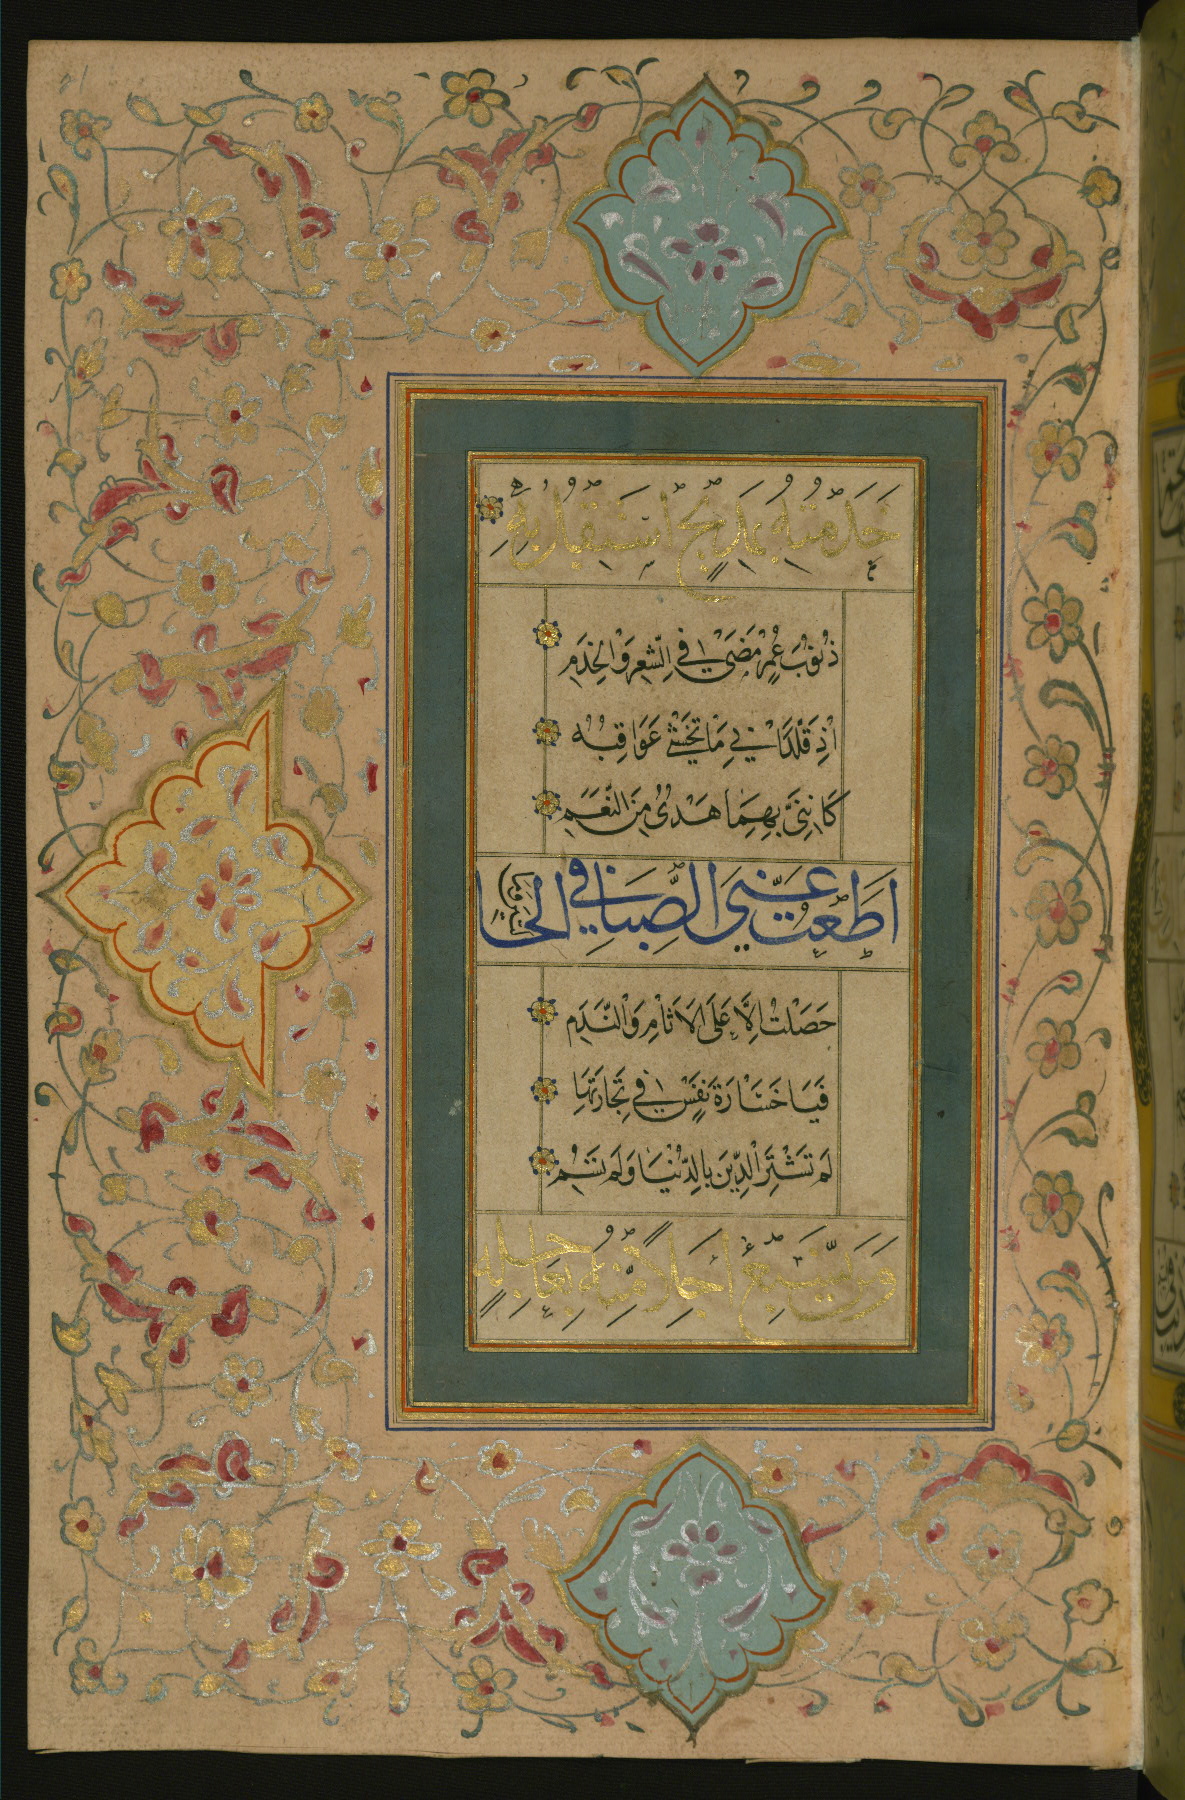 خَدَمْتُهُ بِمَدِيحٍ أَسْتَقِيلُ بِهِ
ذُنُوْبَ عُمْرٍ مَضٰى فِي الشِّعْرِ وَالْخِدَمِ
اِذْ قَلَّدَانِيْ مَا تُخْشٰى عَوَاقِبُهُ
كَاَنَّنِيْ بِهِمَا هَدْىٌ مِنَ النَّعَمِ
اَطَعْتُ غَىَّ الصِّبَا فِى الْحَالَتَيْنِ وَمَا
حَصَلْتُ اِلَّا عَلَى الْاَثَامِ وَالنَّدَمِ
فَيَا خَسَارَةَ نَفْسٍ فِيْ تِجَارَتِهَا
لَمْ تَشْتَرِ الدِّيْنَ بِالدُّنْيَا وَلَمْ تَسُمِ
وَمَنْ يَبِعْ اٰجِلًا مِنْهُ بِعَاجِلِهِ